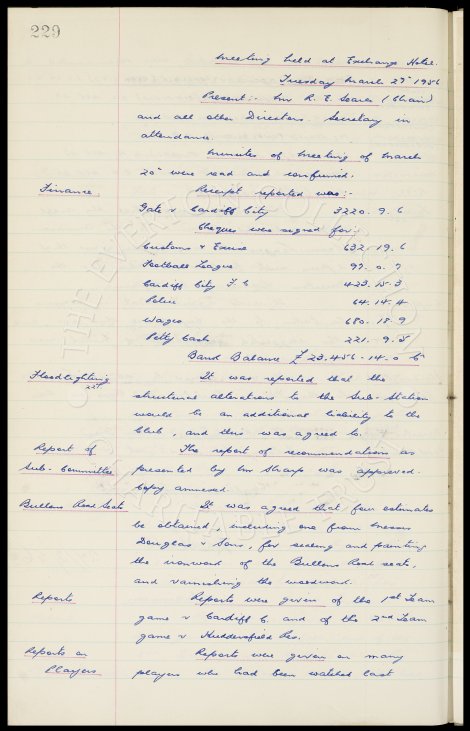 229
Meeting held at Exchange Hotel.
Tuesday March 27th 1956
Present:- Mr R. E. Searle (Chair)
and all other Directors. Secretary in
attendance.
Minutes of Meeting of March
20th were read and confirmed.
Finance Receipt reported was:-
Gate v Cardiff City 3220. 9. 6
Cheques were signed for:-
Customs & Excise 632. 19. 6
Football League 97. 0. 7
Cardiff City F C 423. 15. 3
Police 64. 14. 4
Wages 680. 18. 9
Petty Cash 221. 9. 5
Bank Balance £ 23,456 - 14. 0
Floodlighting It was reported that the
structural alterations to the Sub-Station
would be an additional liability to the
Club, and this was agreed to.
Report of The report of recommendations as
Sub-Committee presented by Mr Sharp was approved.
Copy annexed.
Bullens Road Seats It was agreed that four estimates
be obtained, including one from Messrs
Douglas & Sons, for scaling and painting
the ironwork of the Bullens Road seats,
and varnishing the woodwork.
Reports Reports were given of the 1st Team
game v Cardiff C and of the 2nd Team
game v Huddersfield Res.
Reports on Reports were given on many
Players players who had been watched last
THE EVERTON
CHARITABLE